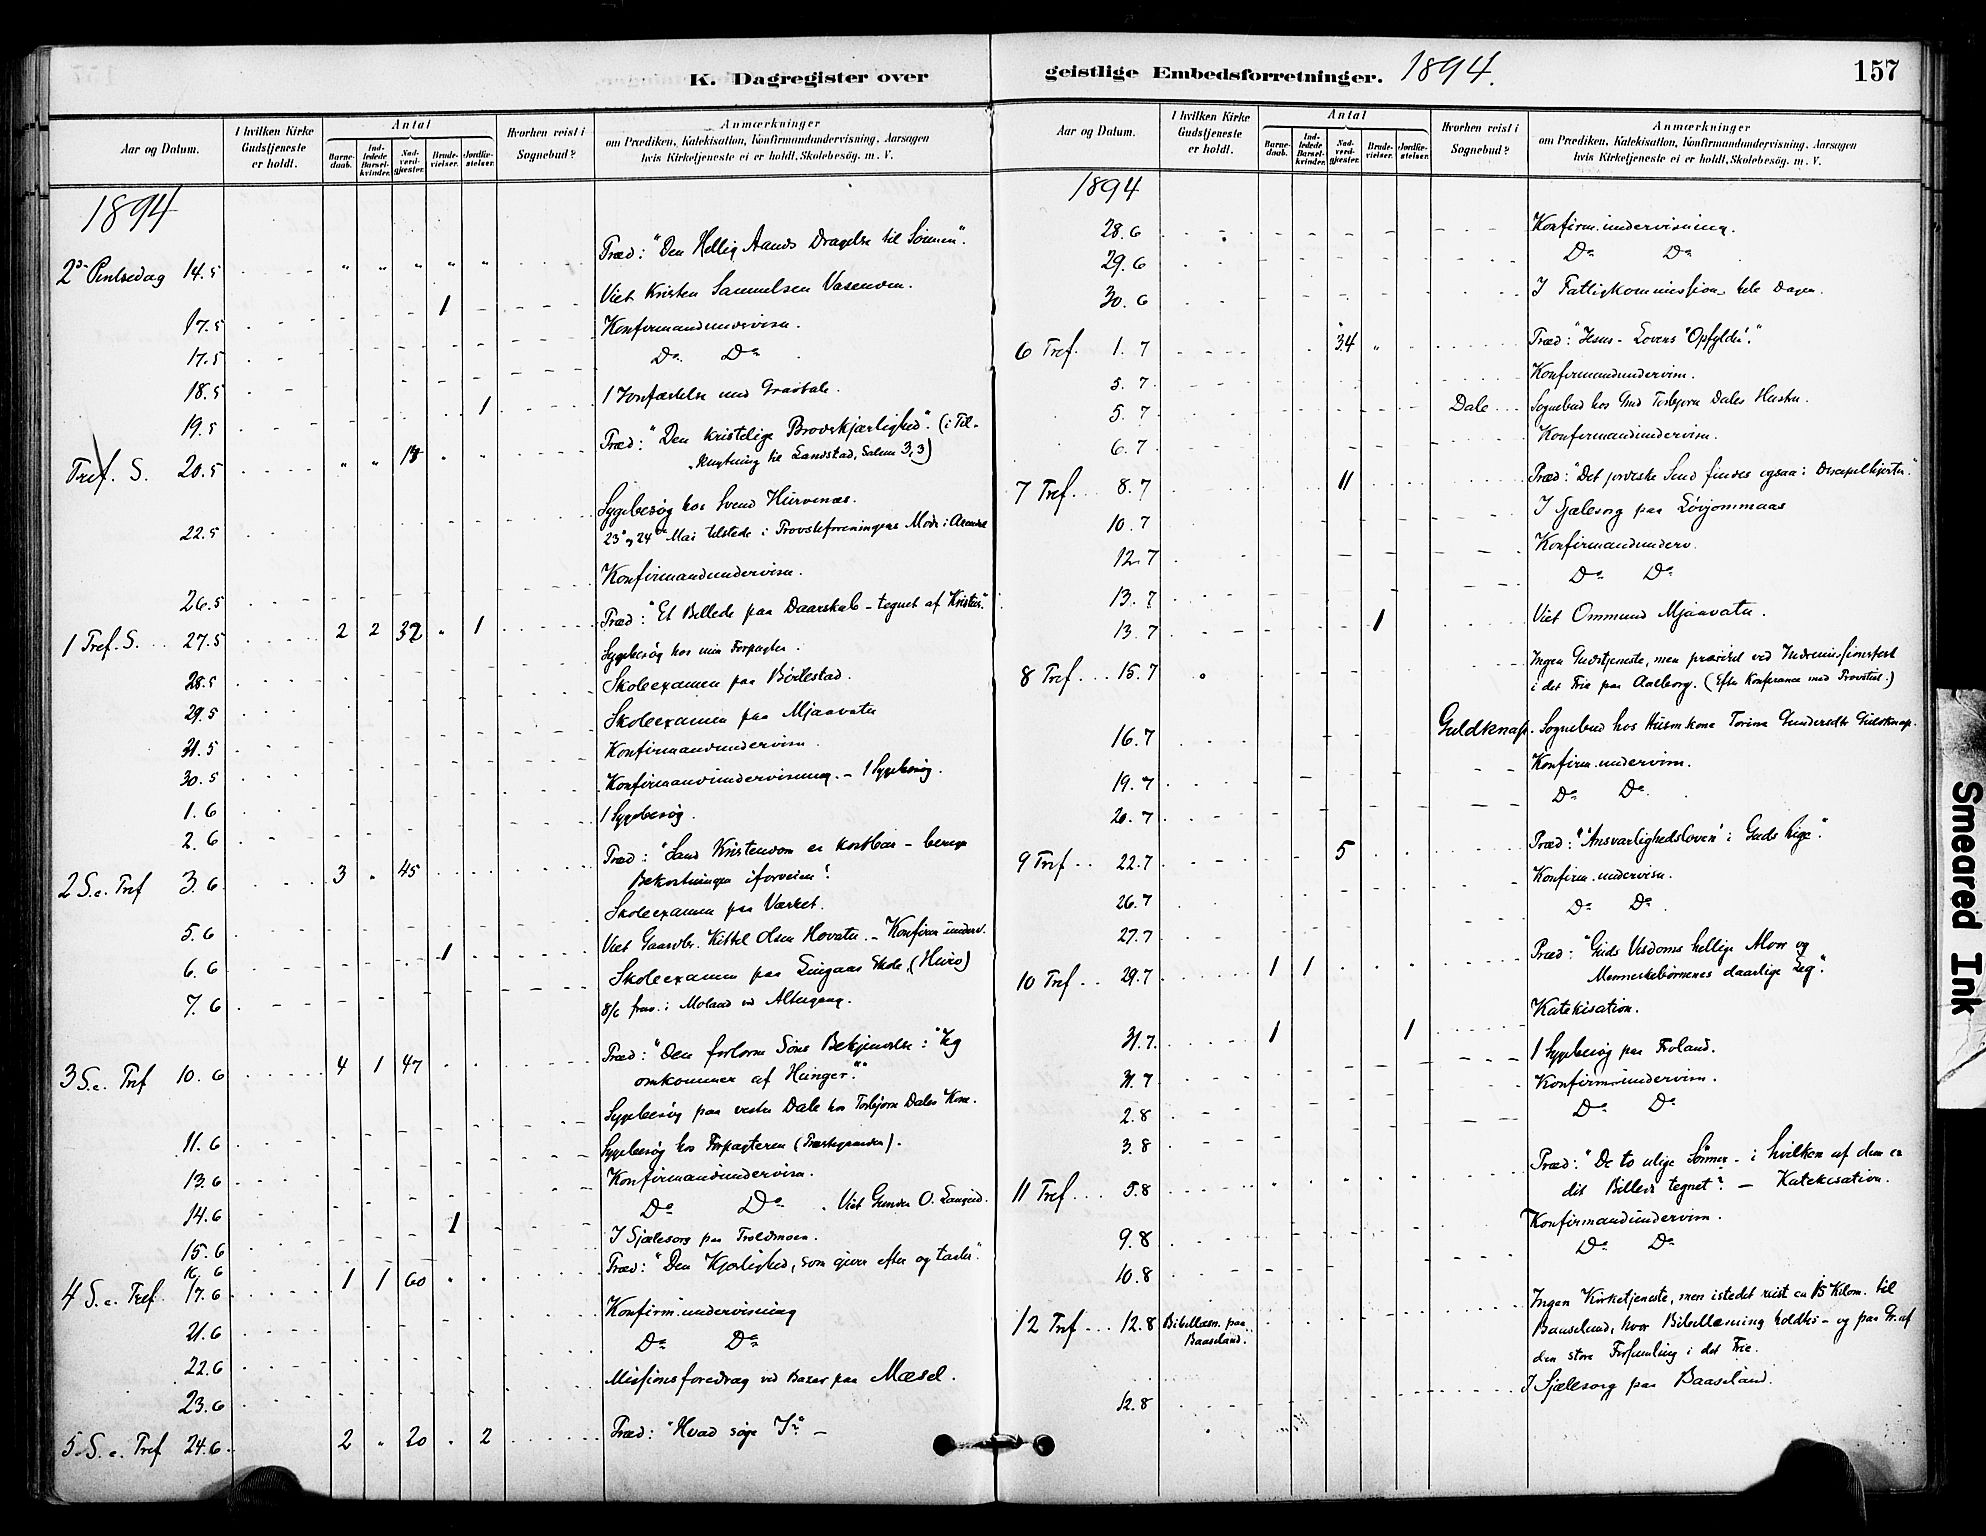 K. Dagregister over
Aar og Datum.
I hvilken Kirke Gudstjeneste er holdt.
Antal
Barnedaab.
Indledede Barselkvinder.
Nadverdgjester.
Brudevielser.
Jordfæstelser.
Hvorhen reist i Sognebud?
Anmærkninger
om Prædiken, Katekisation, Konfirmandundervisning, Aarsagen
hvis Kirketjeneste ei er holdt, Skolebesög. m. V.
1894
2den Pintsedag 14.5 Præd: "Den Hellig Aands Dragelse til Sønnen".
17.5 1 Viet Kristen Samuelsen Vasenden.
17.5 Konfirmandundervisn.
18.5 Do Do
19.5 1 1 Jordfæstelse med Gravtale.
Tref. S. 20.5 18 Præd: "Den kristelige Broderkjærlighed". (i Til-
knytning til Landstad, Salme 3,3)
22.5 Sygebesøg hos Svend Hurvenæs.
23 og 24 Mai tilstede i Provstiforeningens Møde i Arendal
26.5 Konfirmandundervisn.
1 Tref. S. 27.5 2 2 32 1 Præd: "Et Billede paa Daarskab - tegnet af Kristus".
28.5 Sygebesøg hos min Forpagter.
29.5 Skoleexamen paa Børtestad.
31.5 Skoleexamen paa Mjaavatn
30.5 Konfirmandundervisn.
1.6 Konfirmandundervisning. - 1 Sygebesøg.
2.6 1 Sygebesøg.
2 S. e. Tref 3.6 3 45 Præd: "Sand Kristendom er kostbar - beregn
Bekostningen iforveien".
5.6 Skoleexamen paa Værket.
6.6 1 Viet Gaardbr. Kittel Olsen Hovatn. - Konfirm. underv.
7.6 Skoleexamen paa Lingaas Skole, (Huro)
8/6 frav. i Moland ved Altergang.
3 S. e. Tref 10.6 4 1 47 Præd: "Den forlorne Søns Bekjendelse: "Jeg
omkommer af Hunger"."
11.6 Sygebesøg paa vestre Dale hos Torbjørn Dales Kone.
13.6 Sygebesøg hos Forpagteren (Præstegaarden).
14.6 Konfirmandundervisn.
15.6 1 Do Do. Viet Gunder O. Langerd.
16.6 I Sjælesorg paa Troldmoen.
4 S. e. Tref. 17.6 1 1 60 Præd: "Den Kjærlighed, som gjerne efter og taaler".
21.6 Konfirm. undervisning
22.6 Do Do
23.6 Missionsforedrag ved Bazar paa Mæsel.
5 S. e. Tref 24.6 2 20 2 Præd: "Hvad søge I?" -
geistlige Embedsforretninger. 1894.
157
Aar og Datum.
I hvilken Kirke Gudstjeneste er holdt.
Antal
Barnedaab.
Indledede Barselkvinder.
Nadverdgjester.
Brudevielser.
Jordfæstelser.
Hvorhen reist i Sognebud?
Anmærkninger
om Prædiken, Katekisation, Konfirmandundervisning, Aarsagen
hvis Kirketjeneste ei er holdt, Skolebesög. m. V.
1894
28.6 Konfirm. undervisning.
29.6 Do Do
30.6 I Fattigkommission hele Dagen.
6 Tref. 1.7 34 Præd: "Jesus - Lovens Opfylder".
5.7 Konfirmandundervisn.
5.7 Dale Sognebud hos Gmd Torbjørn Dales Hustru.
6.7 Konfirmandundervisn.
7 Tref. 8.7 11 Præd: "Det jødiske Sind findes ogsaa i Discipelhjerter".
10.7 I Sjælesorg paa Løvjommaas
12.7 Konfirmandunderv.
13.7 Do Do
13.7 1 Viet Ommund Mjaavatn.
8 Tref. 15.7 Ingen Gudstjeneste, men prædiket ved Indremissionsfest
i det Frie paa Aalborg. (Efter Konferance med Provsten.)
16.7 Guldknap. Sognebud hos Husmkone Torine Gundersdtr Guldknap.
19.7 Konfirm. undervisn.
20.7 Do Do
9 Tref. 22.7 5 Præd: "'Ansvarlighedsloven' i Guds Rige".
26.7 Konfirm. undervisn.
27.7 Do Do.
10 Tref. 29.7 1 1 Præd: "Guds Visdoms hellige Alvor og
Menneskebørnenes daarlige Leg".
Katekisation.
31.7. 1 1 1 Sygebesøg paa Froland.
31.7
2.8 Konfirm. undervisn.
3.8 Do Do
11 Tref. 5.8 Præd: "De to ulige Sønner - i hvilken af dem er
dit Billede tegnet? - Katekisation.
9.8 Konfirmandundervisn.
10.8 Do Do
12 Tref 12.8 Bibellæsn. paa Baaseland. Ingen Kirketjeneste, men istedet reist ca 15 Kilom. til
Baaseland, hvor Bibellæsning holdtes - og paa Gr. af
den store Forsamling i det Frie.
12.8 I Sjælesorg paa Baaseland.
Smeared Ink